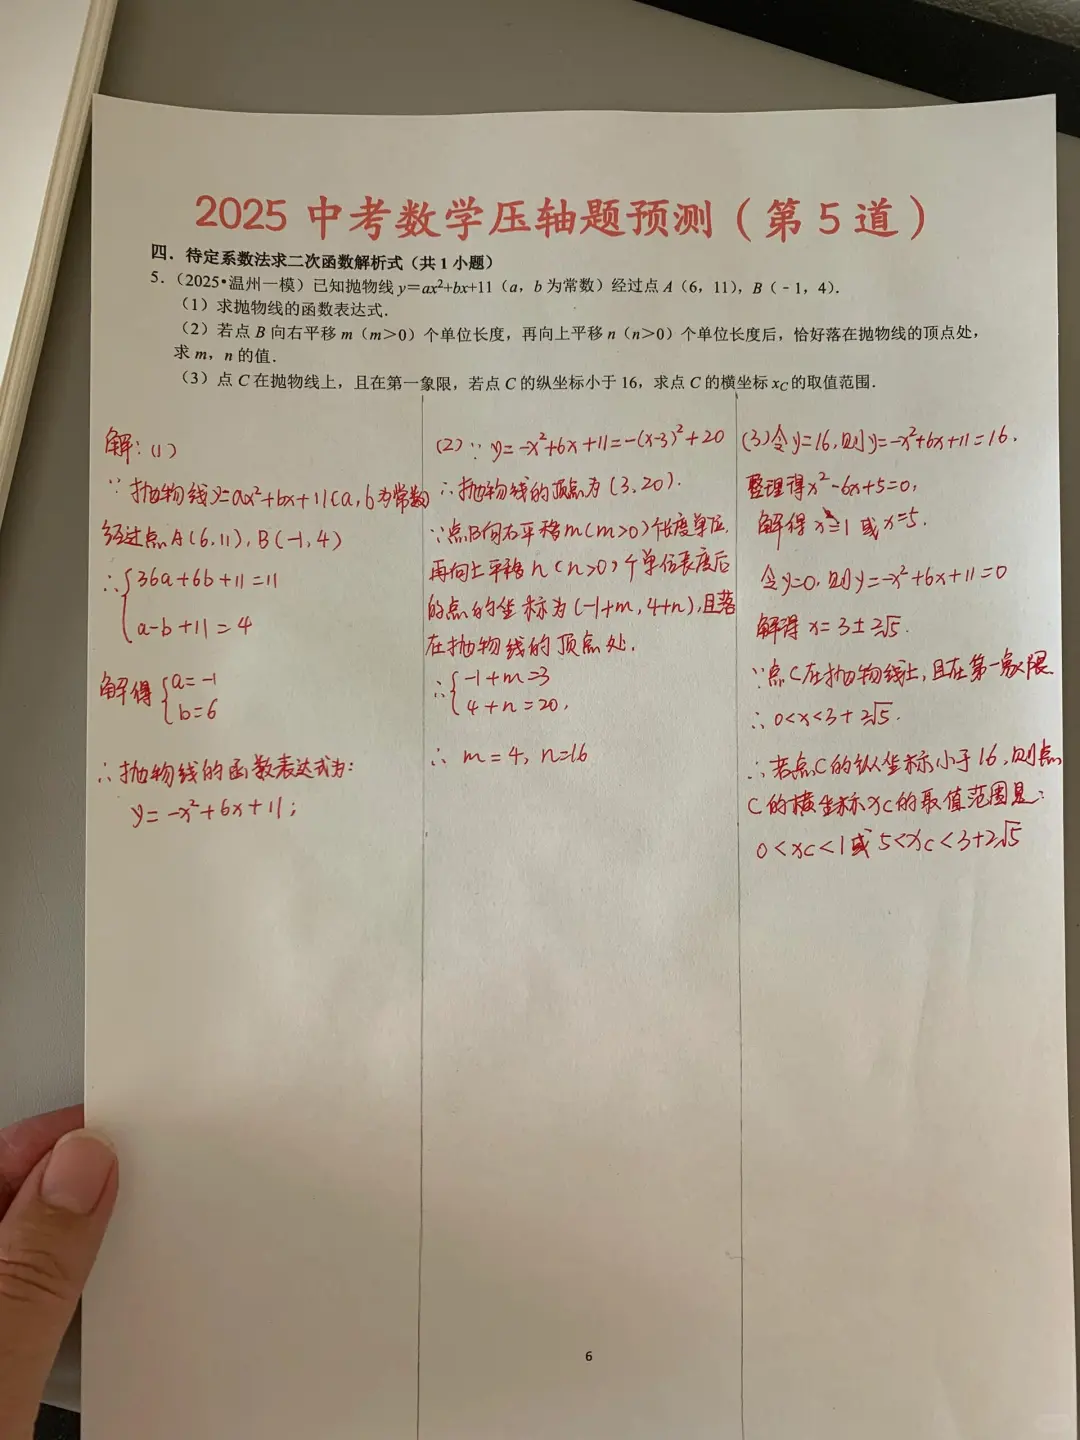 2025 中考数学压轴题预测（第 5 道）
四．待定系数法求二次函数解析式（共 1 小题）
5．（2025•温州一模）已知抛物线 y＝ax²+bx+11（a，b 为常数）经过点 A（6，11），B（﹣1，4）．
（1）求抛物线的函数表达式．
（2）若点 B 向右平移 m（m＞0）个单位长度，再向上平移 n（n＞0）个单位长度后，恰好落在抛物线的顶点处，
求 m，n 的值．
（3）点 C 在抛物线上，且在第一象限，若点 C 的纵坐标小于 16，求点 C 的横坐标 xC 的取值范围．
解：(1)
∵ 抛物线y=ax²+bx+11(a,b为常数)
经过点A(6,11), B(-1,4)
∴ { 36a+6b+11=11
a-b+11=4
解得 { a=-1
b=6
∴ 抛物线的函数表达式为：
y=-x²+6x+11；
(2)∵ y=-x²+6x+11=-(x-3)²+20
∴抛物线的顶点为(3,20).
∵点B向右平移m(m>0)个长度单位,
再向上平移n(n>0)个单位长度后
的点的坐标为(-1+m,4+n),且落
在抛物线的顶点处.
∴ { -1+m=3
4+n=20,
∴ m=4, n=16
(3)令y=16,则y=-x²+6x+11=16.
整理得x²-6x+5=0,
解得x=1 或x=5.
令y=0,则y=-x²+6x+11=0
解得 x=3±2√5.
∵点C在抛物线上,且在第一象限
∴ 0<x<3+2√5.
∴若点C的纵坐标小于16,则点
C的横坐标xC的取值范围是：
0<xC<1或5<xC<3+2√5
6